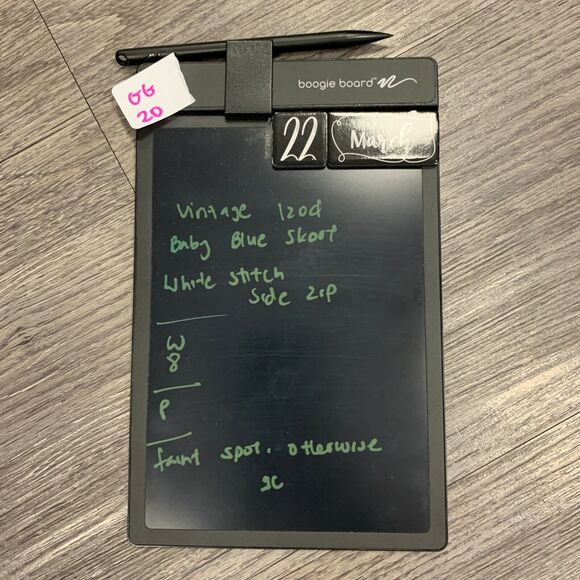 GG
20
boogie board™
22
March
Vintage Izod
Baby Blue Skort
White stitch
Side zip
W
8
P
faint spot. otherwise
gc